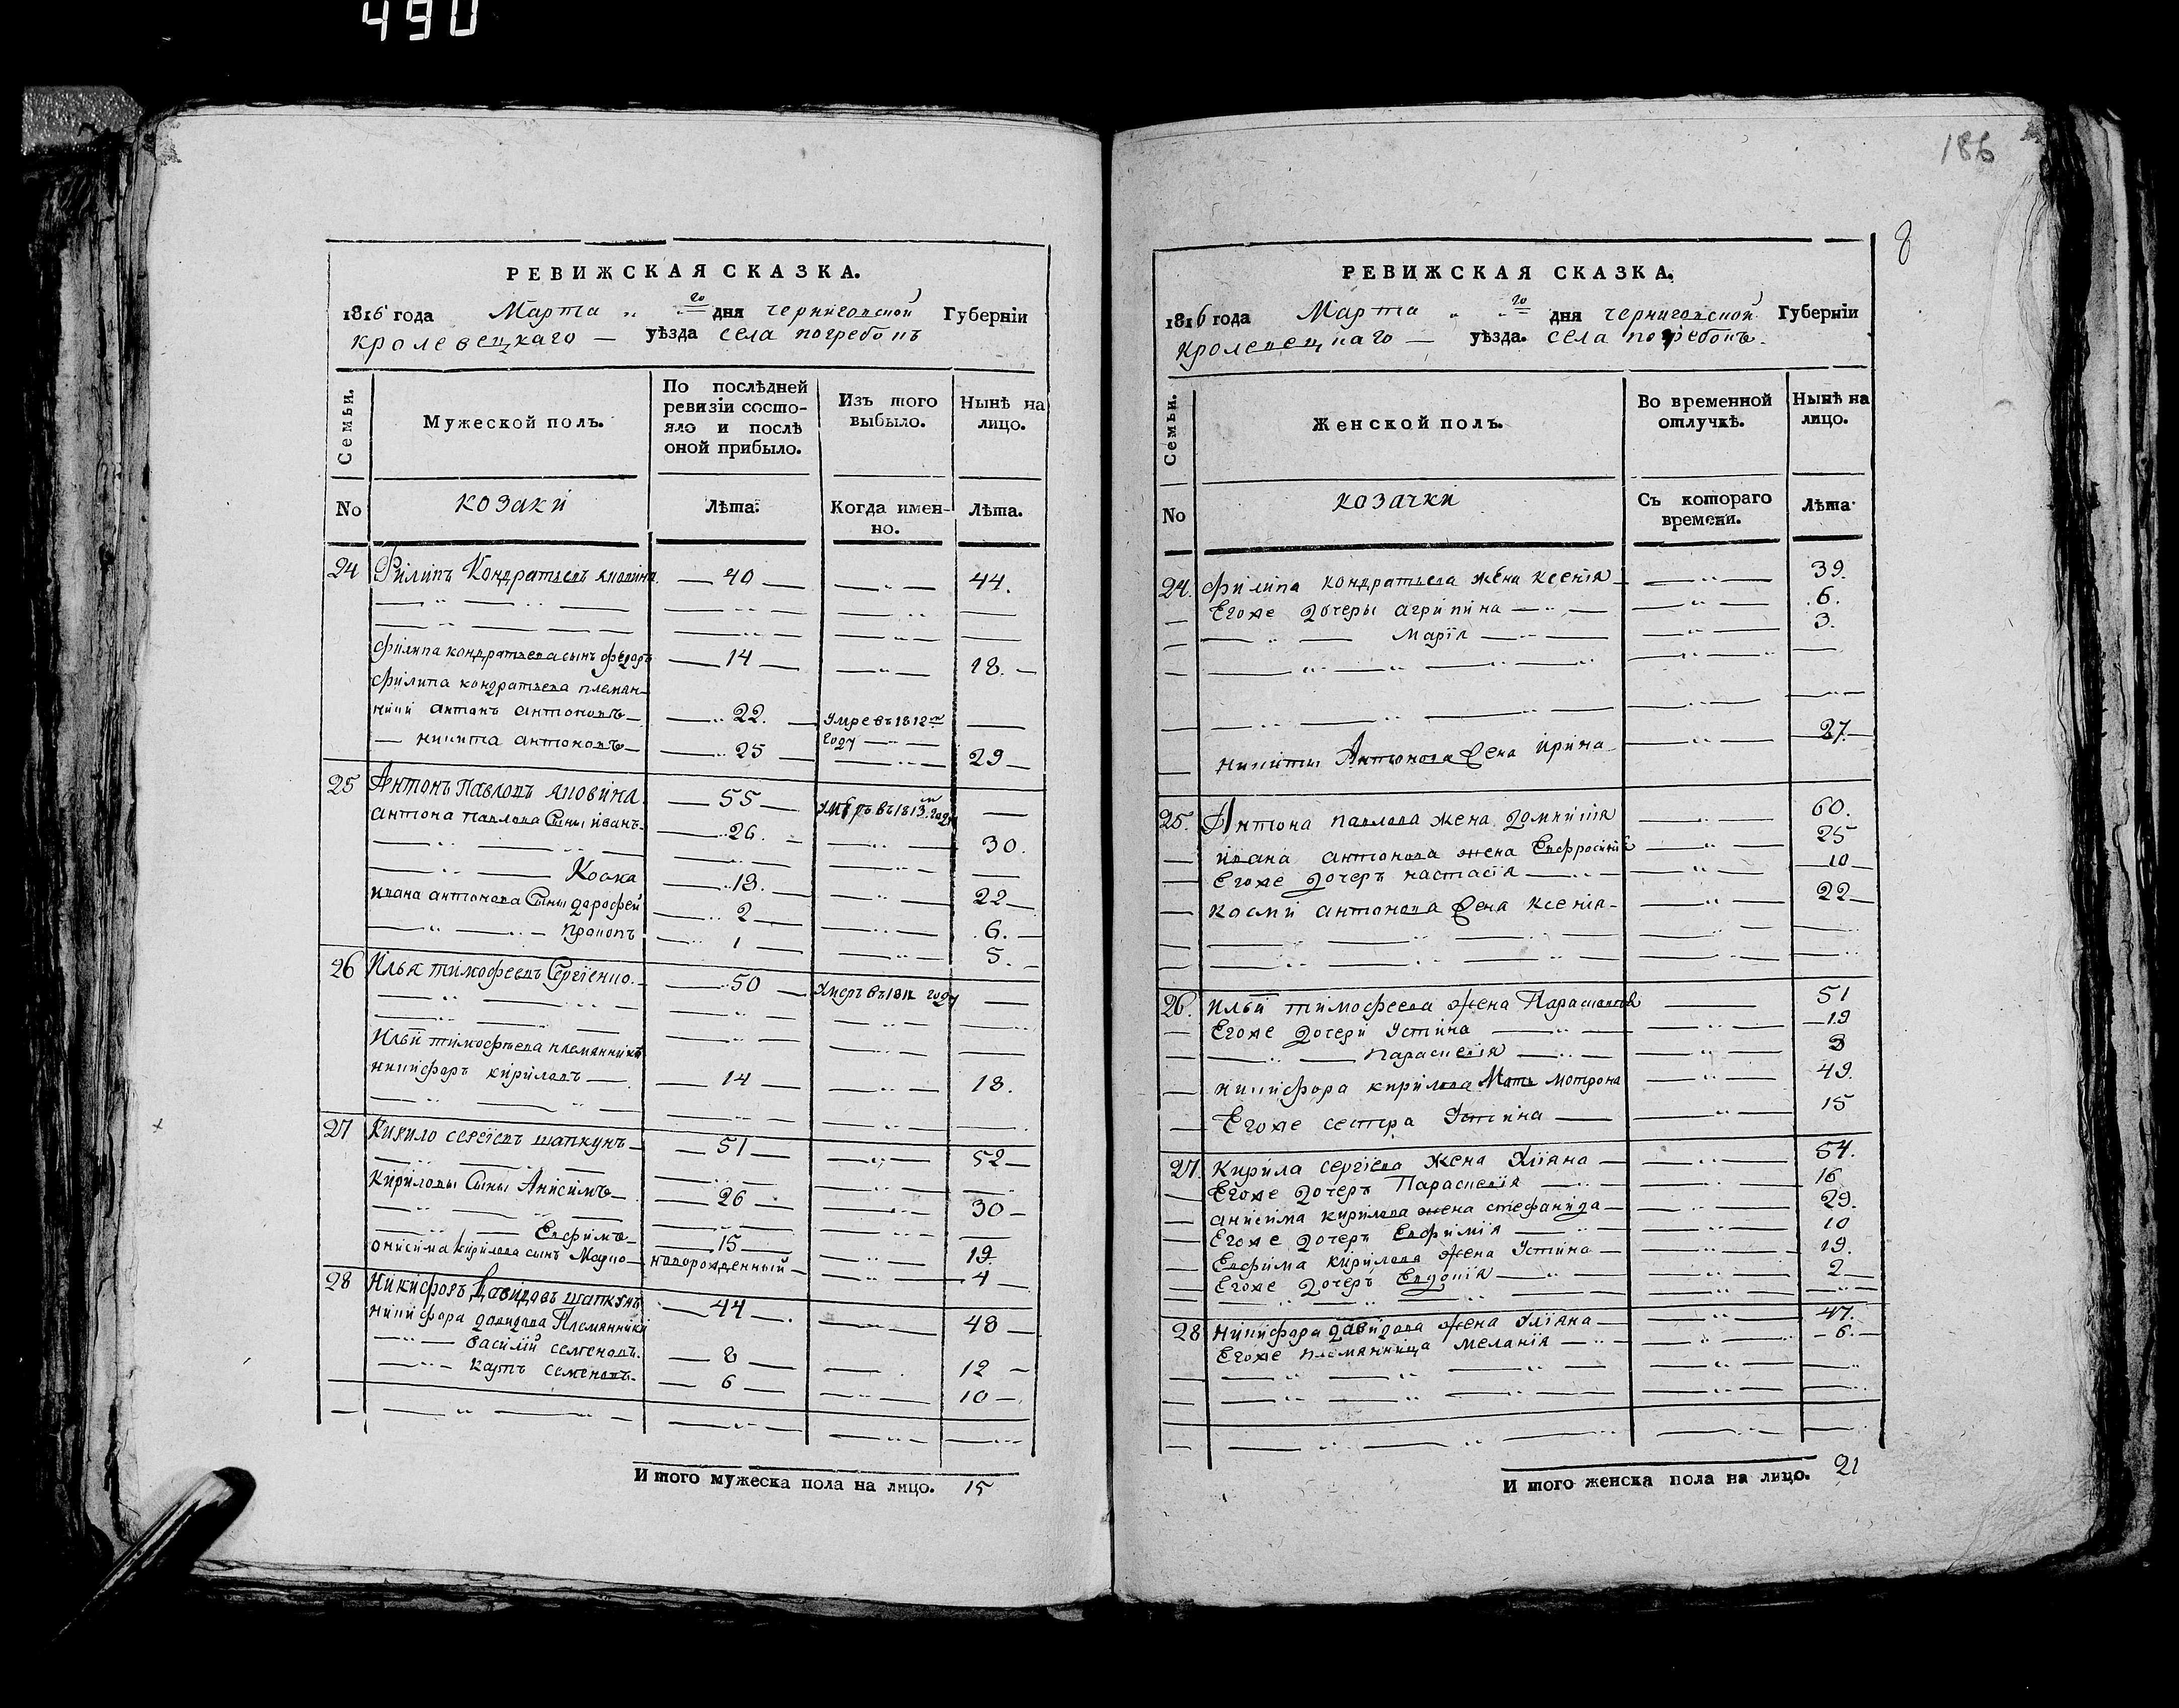 490
РЕВИЖСКАЯ СКАЗКА.
1816 года Марта „ „ го дня черниговской Губерніи
кролевецкаго — уѣзда села погребовъ
Семьи. Мужеской полъ. По послѣдней ревизіи состояло и послѣ оной прибыло. Изъ того выбыло. Нынѣ на лицо.
No козаки Лѣта. Когда именно. Лѣта.
24 Филипъ Кондратьевъ яковина — 40 — 44.
филипа кондратьева сынъ федоръ — 14 — 18. —
филипа кондратьева племян-
ники антонъ антоновъ — 22. — умре въ 1812 м
году
— никита антоновъ — 25 — 29 —
25 Антонъ Павловъ яковина — 55 — умеръ въ 1813 м году —
антона павлова Сыны иванъ — 26. — 30.
Косма — 18. — 22 —
ивана антонова Сыны дорофей — 2 — 6. —
прокопъ — 1 — 5. —
26 Илья тимофеевъ Сергіенко — 50 — умеръ въ 1812 году —
Ильи тимофѣева племянникъ
никифоръ кириловъ — 14 — 18.
27 Кирило сергіевъ шапкунъ — 51 — 52 —
Кириловы Сыны Анисимъ — 26 — 30 —
Евфимъ — 15 — 19.
онисима кирилова сынъ Марко — новорожденный — 4 —
28 Никифоръ Давидовъ шапкунъ — 44 — 48 —
никифора давидова Племянники
василій семеновъ. — 8 — 12 —
карпъ семеновъ — 6 — 10 —
И того мужеска пола на лицо. 15
186
8
РЕВИЖСКАЯ СКАЗКА.
1816 года Марта „ „ го дня черниговской Губерніи
кролевецкаго — уѣзда. села погребовъ.
Семьи. Женской полъ. Во временной отлучкѣ. Нынѣ на лицо.
No козачки Съ котораго времени. Лѣта
24. филипа кондратьева жена ксенія — 39.
Егоже дочеры агрипина — 6.
марія — 3.
никиты Антонова жена ирина — 27.
25. Антона павлова жена домникія — 60.
ивана антонова жена Евфросинія — 25
Егоже дочеръ настасія — 10
космы антонова жена ксенія — 22
26. ильи тимофеева жена Параскевія — 51
Егоже дочери устина — 19
параскевія — 3
никифора кирилова Мать мотрона — 49.
Егоже сестра устина — 15
27. Кирила сергіева жена уліяна — 54.
Егоже дочеръ Параскевія — 16
анисима кирилова жена стефанида — 29.
Егоже дочеръ Евфимія — 10
Евфима кирилова жена устина — 19.
Егоже дочеръ Евдокія — 2
28 никифора давидова жена уліяна — 47.
Егоже племянница меланія — 6.
И того женска пола на лицо. 21